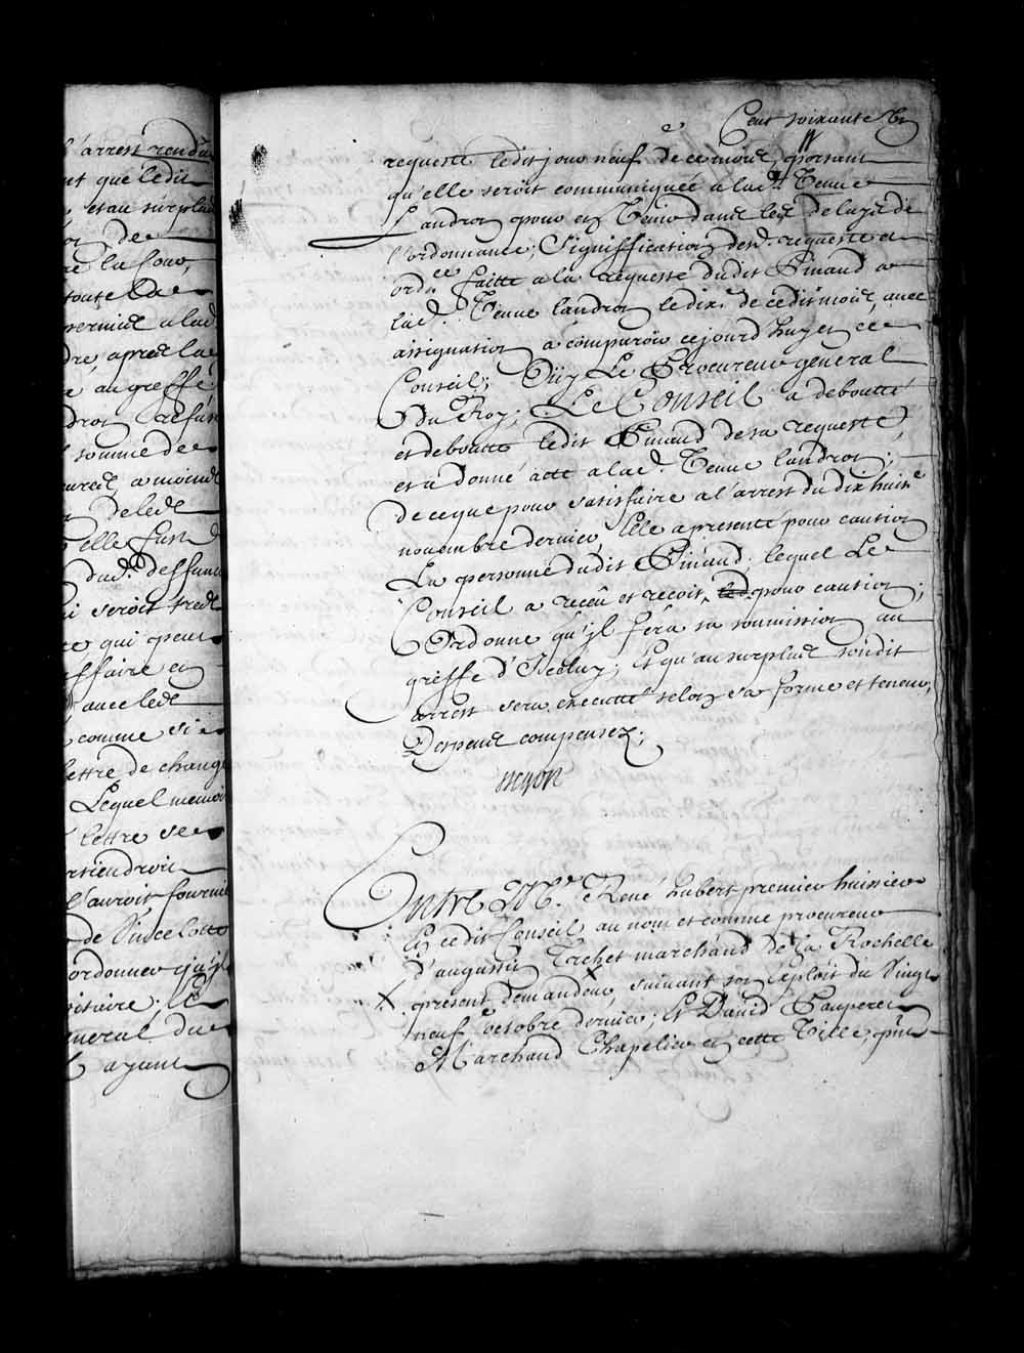 l'arrest rendu
nt que ledit
et au surplus
de
re la Cour,
toute la
permis a lad
dre, apres la
e au greffe
dron
somme de
a moins
de lede
elle fust
dud. deffunt
i seroit
ce qui peut
ffaire en
avec lede
comme si
lettre de change
Lequel memoi
lettre se
rtiendroit
l'auroit fourni
de
ordonner qu'il
oitoire; le
neral du
ayant
Cent soixante Un
requeste ledit jour neufe de ce mois, portant
qu'elle seroit communiquée a lade. Veuve
Landron pour en Venir dans les delays de
l'ordonnance; Signiffication desd. requeste et
ordce. faitte a la requeste dudit Pinaud a
lade. Veuve landron le dixe. de cedit mois, avec
assignation a comparoir cejourd'huy en ce
Conseil; Oüy Le Procureur general
Du Roy; Le Conseil a deboutté
et deboutte ledit Pinaud de sa requeste,
et a donné acte a lad. Veuve landron;
de ce que pour satisfaire a l'arrest du dix huite
novembre dernier, Elle a presenté pour caution
La personne dudit Pinaud; lequel Le
Conseil a receu et reçoit, pour caution;
Ordonne qu'jl fera sa soumission au
greffe d'Jceluy; Et qu'au surplus sondit
arrest sera executté selon sa forme et teneur,
Despens compensez;
Entre Me. René hubert premier huissier
En cedit Conseil au nom et comme procureur
d'augustin Trehet marchand de la Rochelle
present demandeur, suivant son Exploit du Vingt
neufe. octobre dernier; Et David Pauperet
Marchand Chapelier en cette Ville, pnt